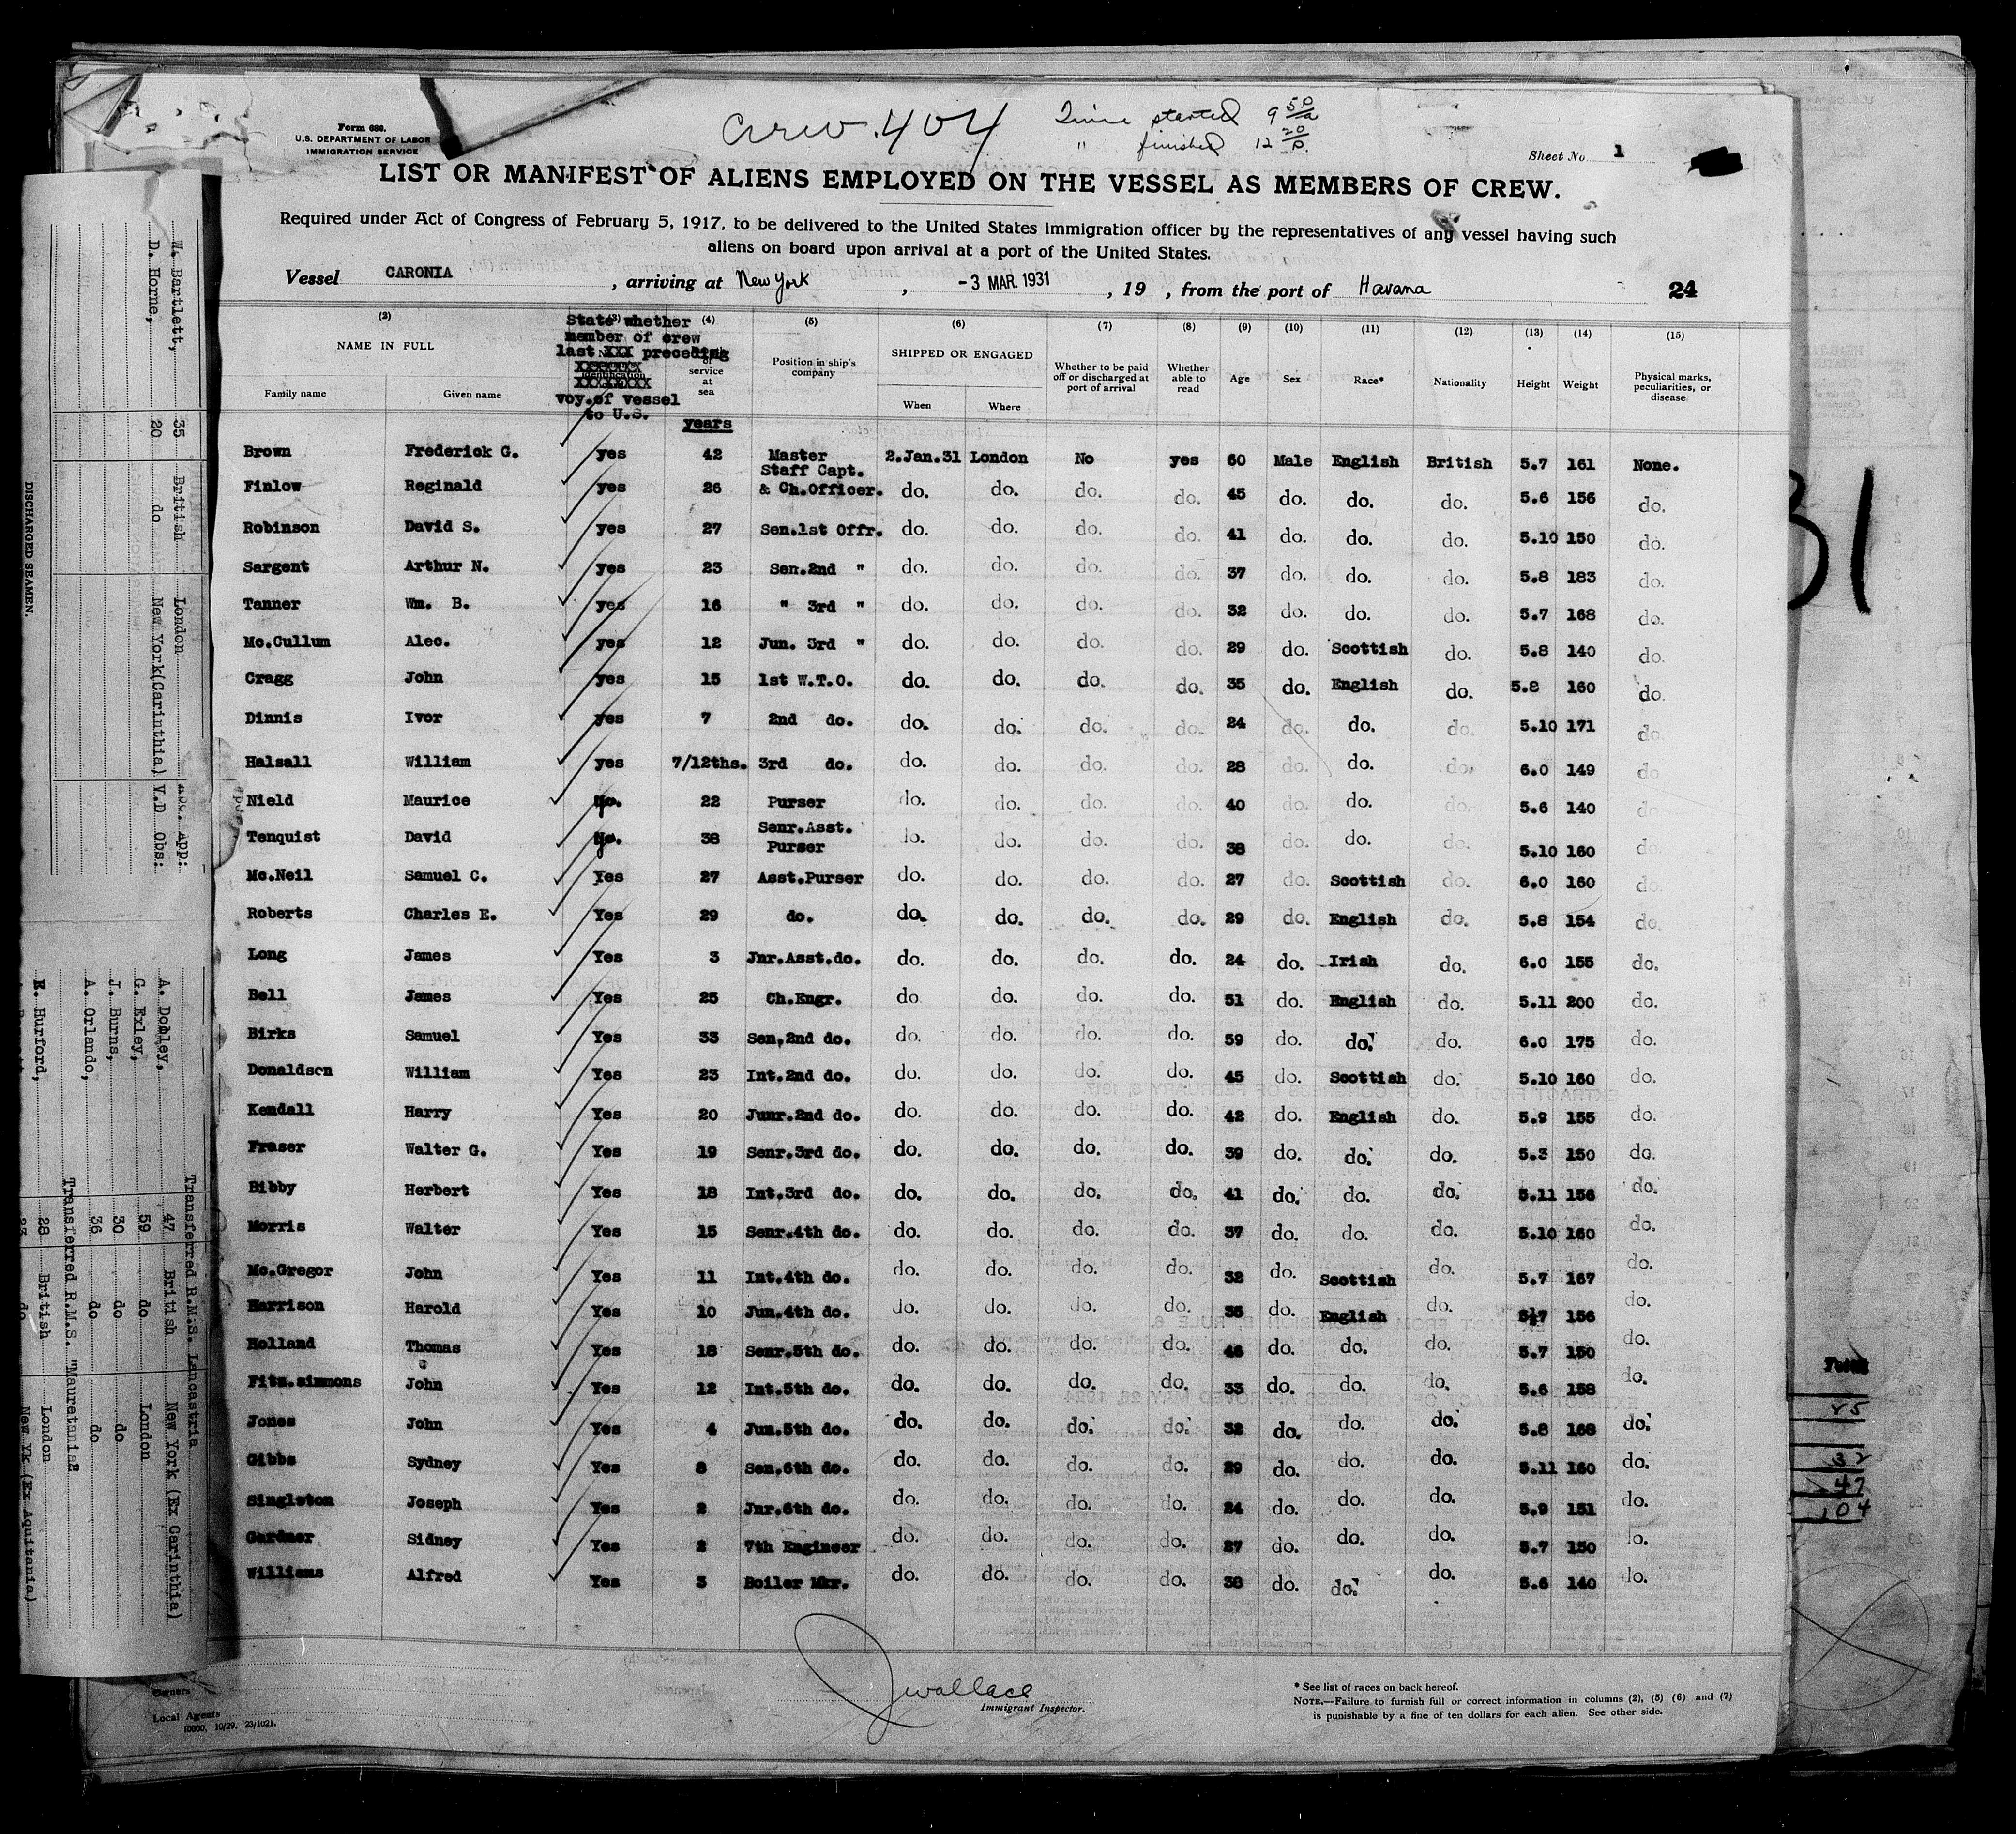 crew. 404
Time started 9 50/a
" finished 12 20/p.
Form 680.
U.S. DEPARTMENT OF LABOR
IMMIGRATION SERVICE
Sheet No 1
LIST OR MANIFEST OF ALIENS EMPLOYED ON THE VESSEL AS MEMBERS OF CREW.
Required under Act of Congress of February 5, 1917, to be delivered to the United States immigration officer by the representatives of any vessel having such
aliens on board upon arrival at a port of the United States.
Vessel CARONIA , arriving at New York , -3 MAR. 1931 , 19 , from the port of Havana 24
(2) (3) (4) (5) (6) (7) (8) (9) (10) (11) (12) (13) (14) (15)
NAME IN FULL
Family name Given name
State whether
member of crew
last XXX preceding
voy.of vessel
to U.S.
service
at
sea
years
Position in ship's
company
SHIPPED OR ENGAGED
When Where
Whether to be paid
off or discharged at
port of arrival
Whether
able to
read
Age Sex Race* Nationality Height Weight
Physical marks,
peculiarities, or
disease
Brown Frederick G. yes 42 Master 2.Jan.31 London No yes 60 Male English British 5.7 161 None.
Finlow Reginald yes 26 Staff Capt. & Ch.Officer. do. do. do. do. 45 do. do. do. 5.6 156 do.
Robinson David S. yes 27 Sen.1st Offr. do. do. do. do. 41 do. do. do. 5.10 150 do.
Sargent Arthur N. yes 23 Sen.2nd " do. do. do. do. 37 do. do. do. 5.8 183 do.
Tanner Wm. B. yes 16 " 3rd " do. do. do. do. 32 do. do. do. 5.7 168 do.
Mc.Cullum Alec. yes 12 Jun. 3rd " do. do. do. do. 29 do. Scottish do. 5.8 140 do.
Cragg John yes 15 1st W.T.O. do. do. do. do. 35 do. English do. 5.8 160 do.
Dinnis Ivor yes 7 2nd do. do. do. do. do. 24 do. do. do. 5.10 171 do.
Halsall William yes 7/12ths. 3rd do. do. do. do. do. 28 do. do. do. 6.0 149 do
Nield Maurice 22 Purser do. do. do. do. 40 do. do. do. 5.6 140 do
Tenquist David 38 Senr.Asst. Purser do. do. do. do. 38 do. do. do. 5.10 160 do.
Mc.Neil Samuel C. Yes 27 Asst.Purser do. do. do. do. 27 do. Scottish do. 6.0 160 do.
Roberts Charles E. Yes 29 do. do. do. do. do. 29 do. English do. 5.8 154 do.
Long James Yes 3 Jnr.Asst.do. do. do. do. do. 24 do. Irish do. 6.0 155 do.
Bell James Yes 25 Ch.Engr. do do. do. do. 51 do. English do. 5.11 200 do.
Birks Samuel Yes 33 Sen.2nd do. do. do. do. do. 59 do. do. do. 6.0 175 do.
Donaldson William Yes 23 Int.2nd do. do. do. do. do. 45 do. Scottish do. 5.10 160 do.
Kendall Harry Yes 20 Junr.2nd do. do. do. do. do. 42 do. English do. 5.9 155 do.
Fraser Walter G. Yes 19 Senr.3rd do. do. do. do. do. 39 do. do. do. 5.3 150 do.
Bibby Herbert Yes 18 Int.3rd do. do. do. do. do. 41 do. do. do. 5.11 156 do.
Morris Walter Yes 15 Senr.4th do. do. do. do. do. 37 do. do. do. 5.10 160 do.
Mc.Gregor John Yes 11 Int.4th do. do. do. do. do. 32 do. Scottish do. 5.7 167 do.
Harrison Harold Yes 10 Jun.4th do. do. do. do. do. 35 do. English do. 5.7 156 do.
Holland Thomas Yes 18 Senr.5th do. do. do. do. do. 46 do. do. do. 5.7 150 do.
Fitz.simmons John Yes 12 Int.5th do. do. do. do. do. 33 do. do. do. 5.6 158 do.
Jones John Yes 4 Jun.5th do. do. do. do. do. 32 do. do. do. 5.8 168 do.
Gibbs Sydney Yes 8 Sen.6th do. do. do. do. do. 29 do. do. do. 5.11 160 do.
Singleton Joseph Yes 2 Jnr.6th do. do. do. do. do. 24 do. do. do. 5.9 151 do.
Gardner Sidney Yes 2 7th Engineer do. do. do. do. 27 do. do. do. 5.7 150 do.
Williams Alfred Yes 3 Boiler Mkr. do. do. do. do. 38 do. do. do. 5.6 140 do.
JWallace
Immigrant Inspector.
* See list of races on back hereof.
NOTE.—Failure to furnish full or correct information in columns (2), (5) (6) and (7)
is punishable by a fine of ten dollars for each alien. See other side.
Owners
Local Agents
10000, 10/29, 23/1021.
W. Bartlett, 35 British London App:
D. Horne, 20 do New York(Carinthia) V.D Obs:
DISCHARGED SEAMEN.
Transferred R.M.S. Lancastria
A. Dobley, 47 British New York (Ex Carinthia)
G. Exley, 59 do London
J. Burns, 30 do do
A. Orlando, 36 do do
Transferred R.M.S. "Mauretania"
E. Hurford, 28 British London
23 do New Yk (Ex Aquitania)
31
25
32
47
104